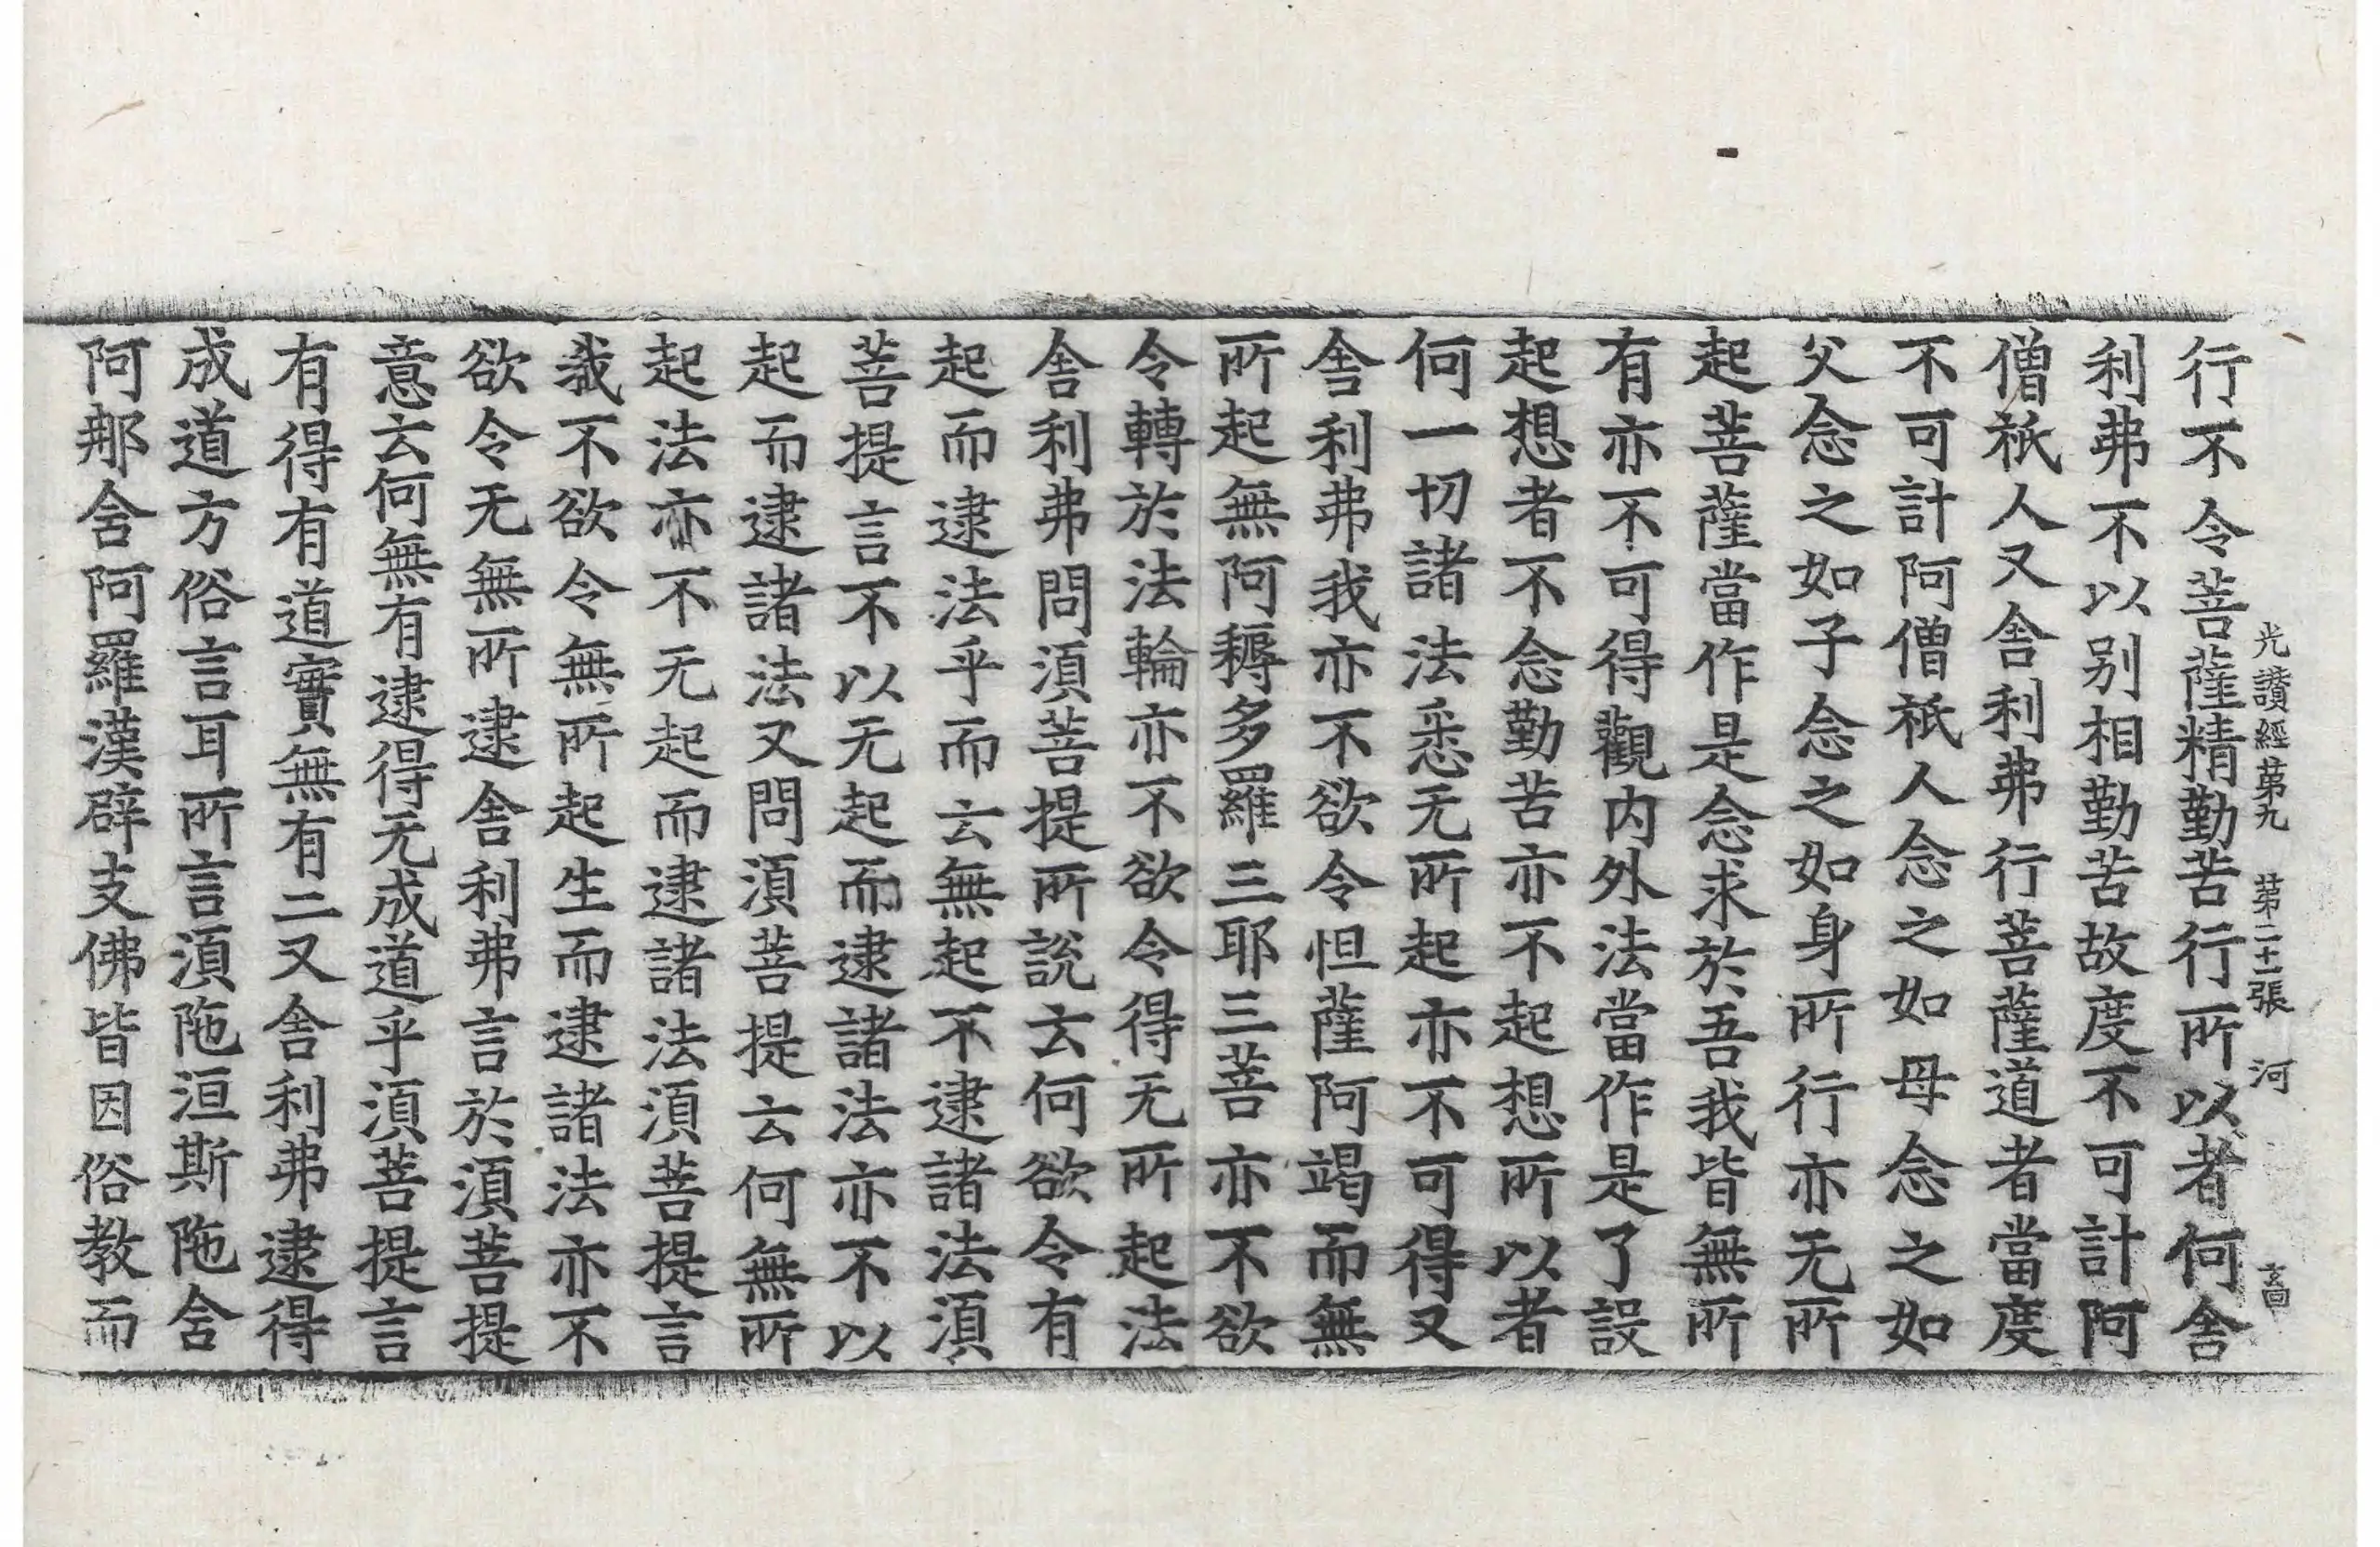 光讃經苐九　苐二十一張　河
行不令菩薩精勤苦行所以者何舍
利弗不以别相勤苦故度不可計阿
僧祇人又舍利弗行菩薩道者當度
不可計阿僧祇人念之如母念之如
父念之如子念之如身所行亦无所
起菩薩當作是念求於吾我皆無所
有亦不可得觀内外法當作是了設
起想者不念勤苦亦不起想所以者
何一切諸法悉无所起亦不可得又
舍利弗我亦不欲令怛薩阿竭而無
所起無阿耨多羅三耶三菩亦不欲
令轉於法輪亦不欲令得无所起法
舍利弗問須菩提所說云何欲令有
起而逮法乎而云無起不逮諸法須
菩提言不以无起而逮諸法亦不以
起而逮諸法又問須菩提云何無所
起法亦不无起而逮諸法須菩提言
我不欲令無所起生而逮諸法亦不
欲令无無所逮舍利弗言於須菩提
意云何無有逮得无成道乎須菩提言
有得有道實無有二又舍利弗逮得
成道方俗言耳所言須陁洹斯陁舍
阿那舍阿羅漢辟支佛皆因俗教而